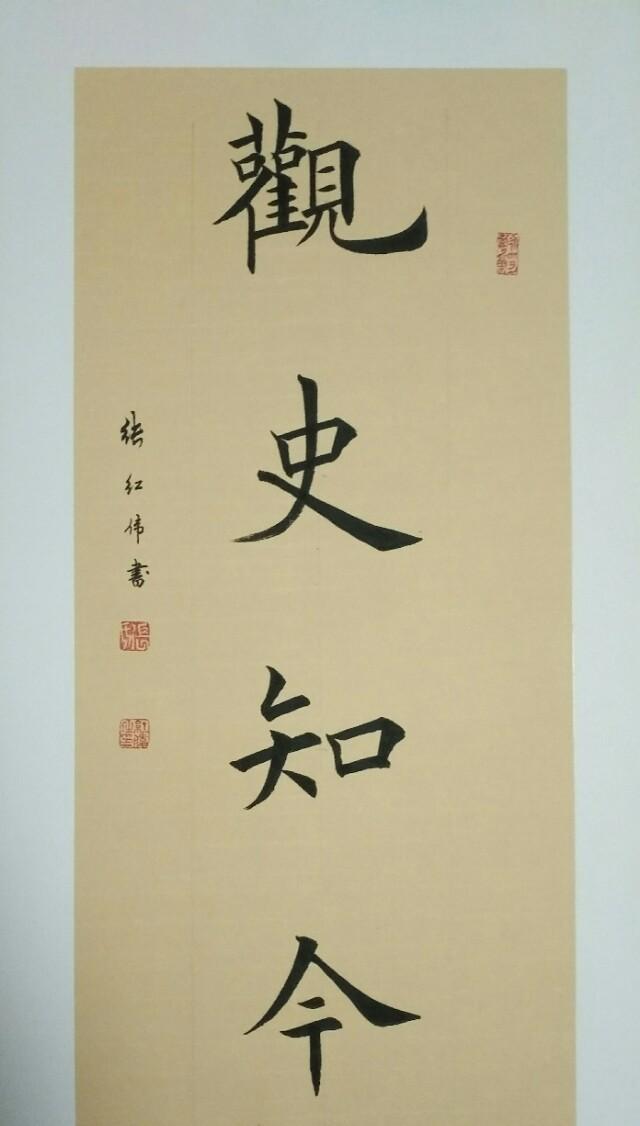 觀史知今
张红伟書